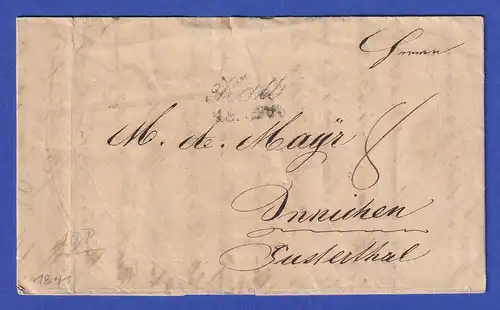 Herrn
Hall
M. de. Mayr
8
Innichen
Pusterthal
1841